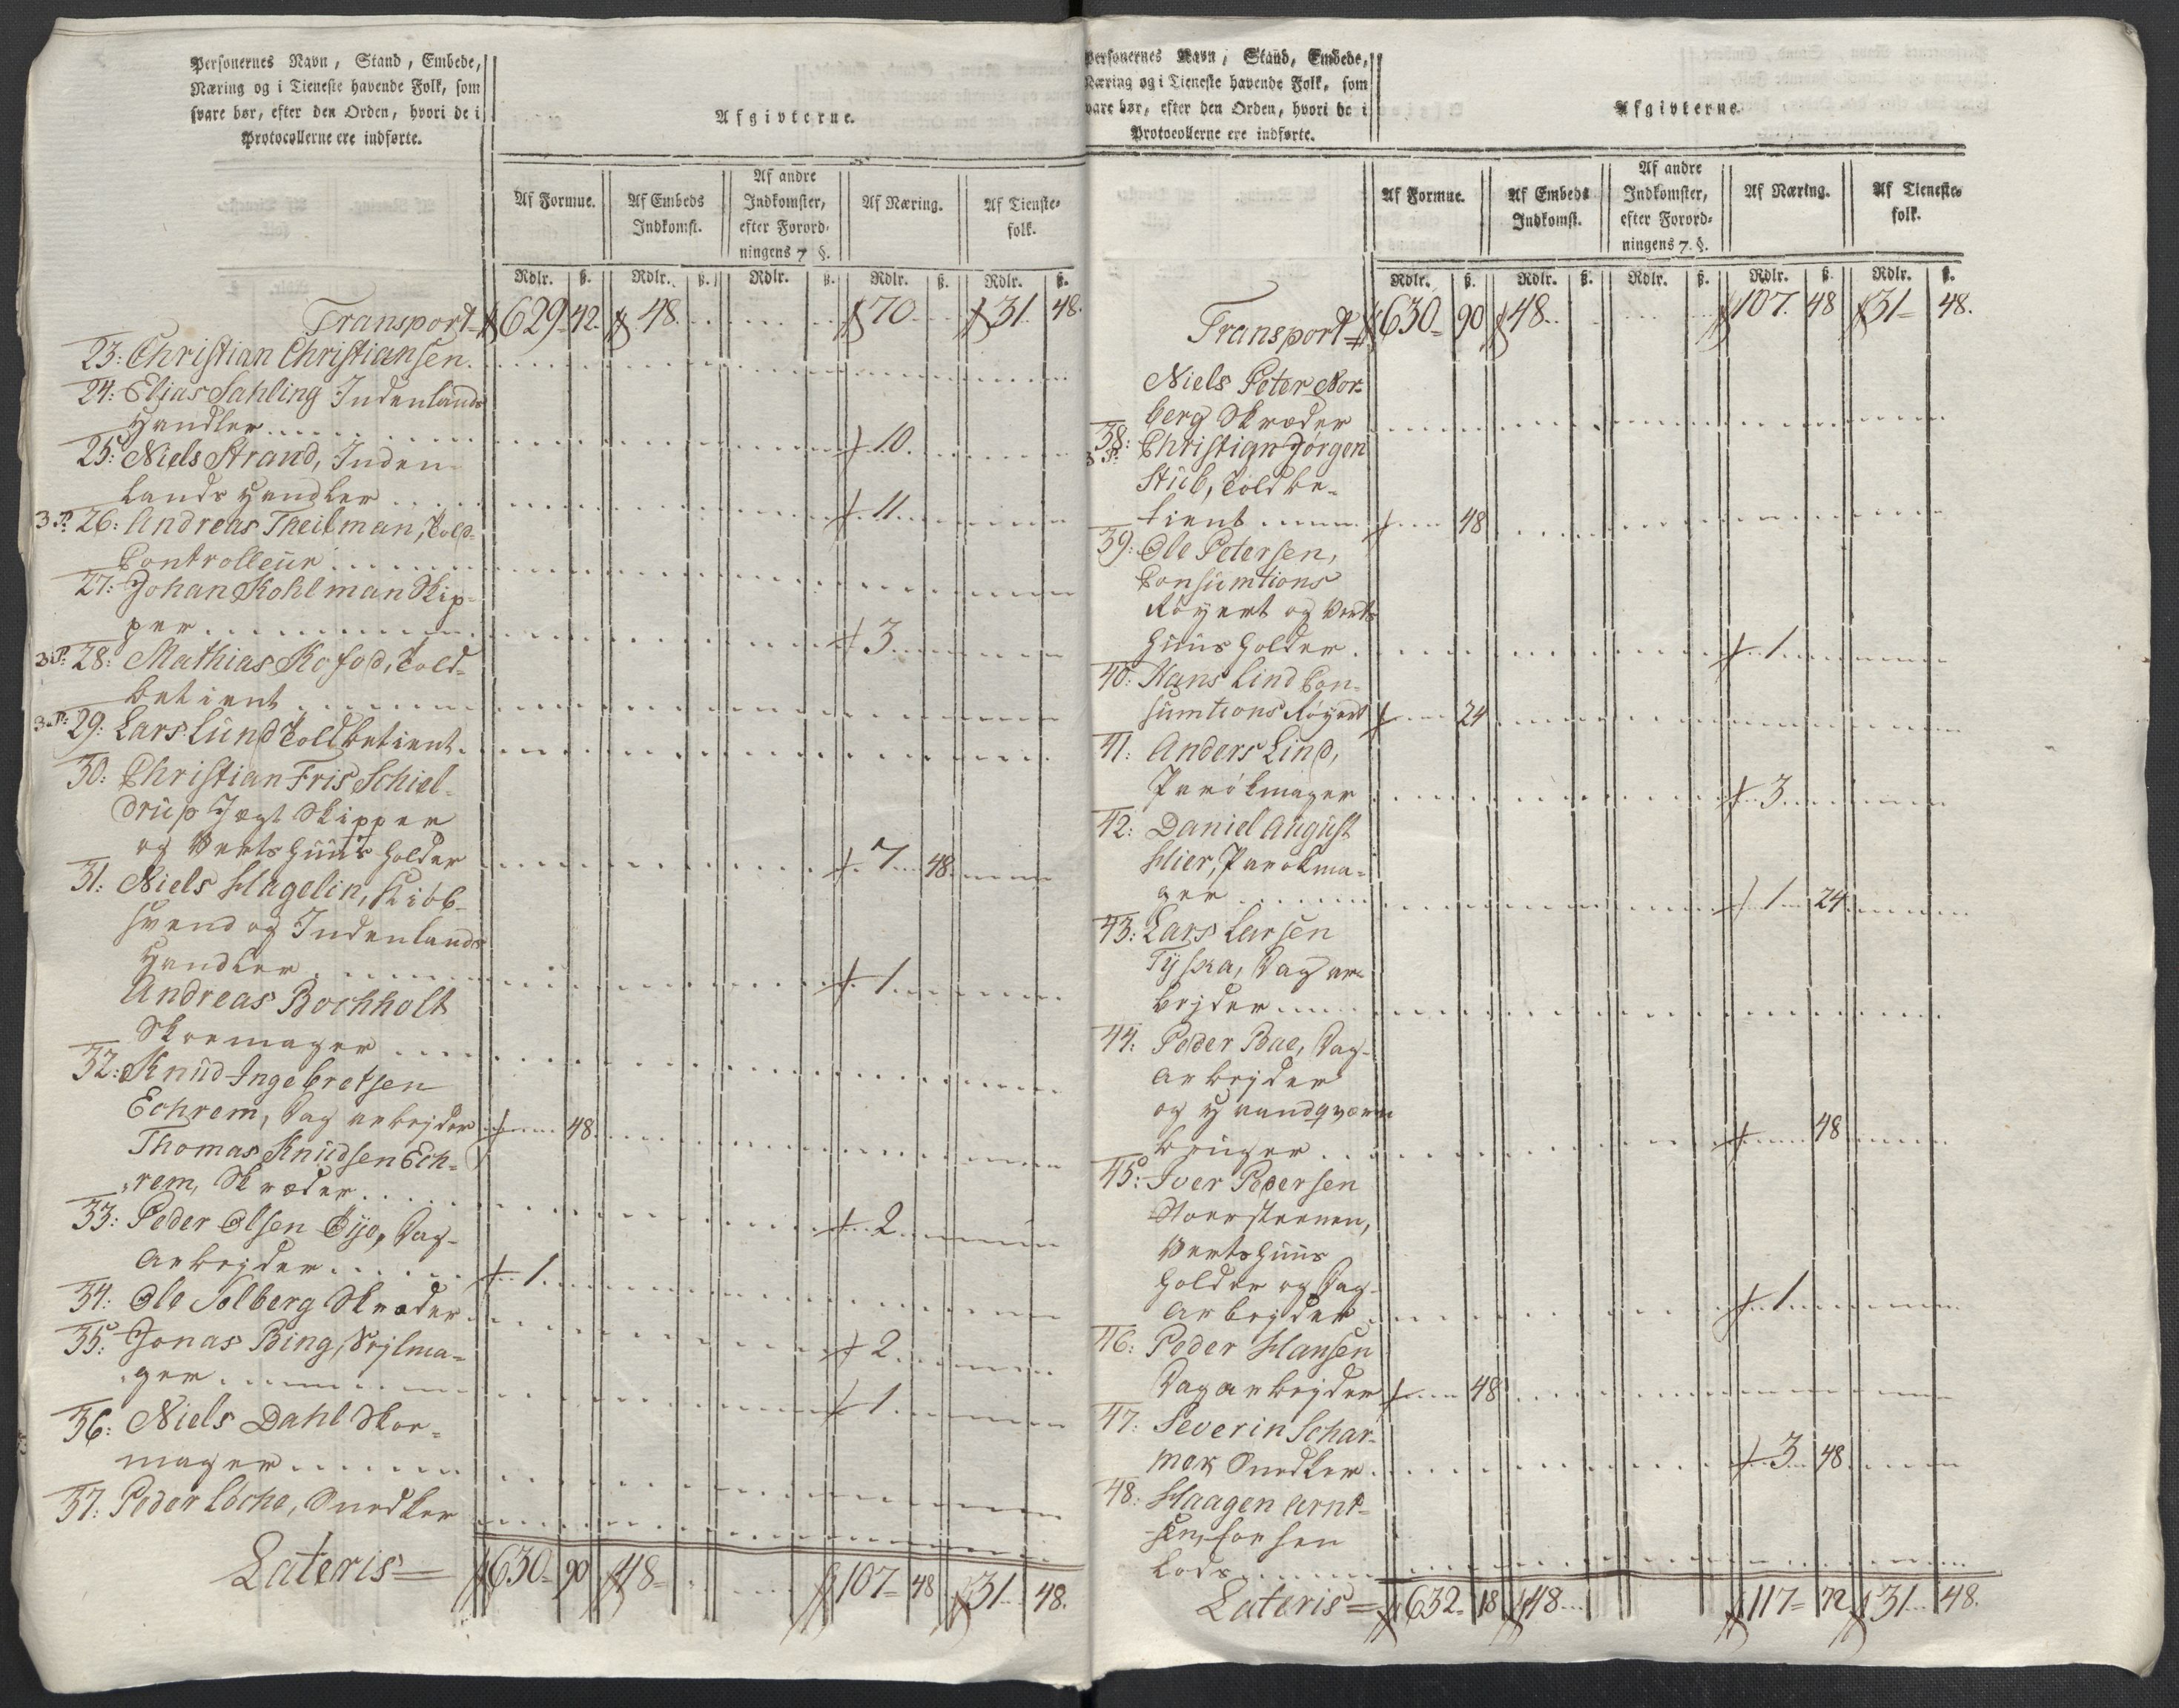 Personernes Navn, Stand, Embede,
Næring og i Tieneste havende Folk, som
svare bør, efter den Orden, hvori de i
Protocollerne ere indførte.
Afgivterne.
Af Formue.
Af Embeds
Indkomst.
Af andre
Indkomster,
efter Forord-
ningens 7 §.
Af Næring.
Af Tieneste-
folk.
Rdlr. ß. Rdlr. ß. Rdlr. ß. Rdlr. ß. Rdlr. ß.
Transport 629 42 48 70 31 48.
23: Christian Christiansen.
24: Elias Sahling Indenlands
Handler 10.
25: Niels Strand, Inden-
lands Handler 11
3. P. 26: Andreas Theilman, Told-
Controlleur
27: Johan Kohlman Skip-
per 3
3. P. 28: Mathias Kofod, Told-
betient
3. P. 29: Lars Lund Toldbetient.
30: Christian Fris Schiel-
drup Jægt Skipper
og Vertshuusholder 7 48
31: Niels Hagelin, Kiøb-
svend og Indenlands
Handler 1
Andreas Bochholt
Skoemager
32: Knud Ingebretsen
Echrem, Dagarbejder 48
Thomas Knudsen Ech-
rem, Skræder 2
33: Peder Olsen Øye, Dag-
arbejder 1
34: Ole Solberg Skræder 2
35: Jonas Bing, Sejlma-
ger 1
36: Niels Dahl Skoe-
mager
37: Peder Loche, Snedker
Lateris = 630 90 48 107 48 31 48.
Personernes Navn, Stand, Embede,
Næring og i Tieneste havende Folk, som
svare bør, efter den Orden, hvori de i
Protocollerne ere indførte.
Afgivterne.
Af Formue.
Af Embeds
Indkomst.
Af andre
Indkomster,
efter Forord-
ningens 7. §.
Af Næring.
Af Tieneste-
folk.
Rdlr. ß. Rdlr. ß. Rdlr. ß. Rdlr. ß. Rdlr. ß.
Transport 630 90 48 107 48 31 48.
Niels Peter Nor-
berg Skræder
38: Christian Jørgen
3 P.
Stub, Toldbe-
tient 48
39: Ole Petersen,
Consumtions
Røyert og Verts-
huusholder 1
40: Hans Lind Con-
sumtions Røyert 24
41: Anders Lind,
Parükmager 3
42: Daniel August
Hier, Parükma-
ger 1 24
43: Lars Larsen
Tyska, Dagar-
bejder
44: Peder Bae, Dag-
arbejder
og Haandqværn
bruger 48
45: Iver Pedersen
Stoersteenen,
Vertshuus
holder og Dag-
arbejder 1
46: Peder Hansen
Dagarbejder 48
47: Severin Schar-
mok Snedker 3 48
48: Haagen Arnt-
sen,
Lods
Lateris = 632 18 48 117 72 31 48.